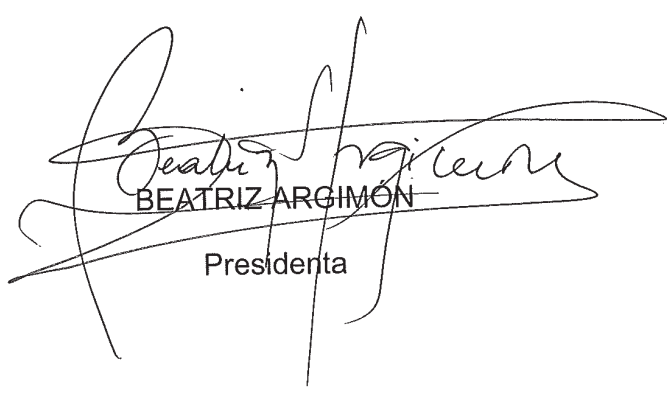 Beatriz Argimón
BEATRIZ ARGIMÓN
Presidenta